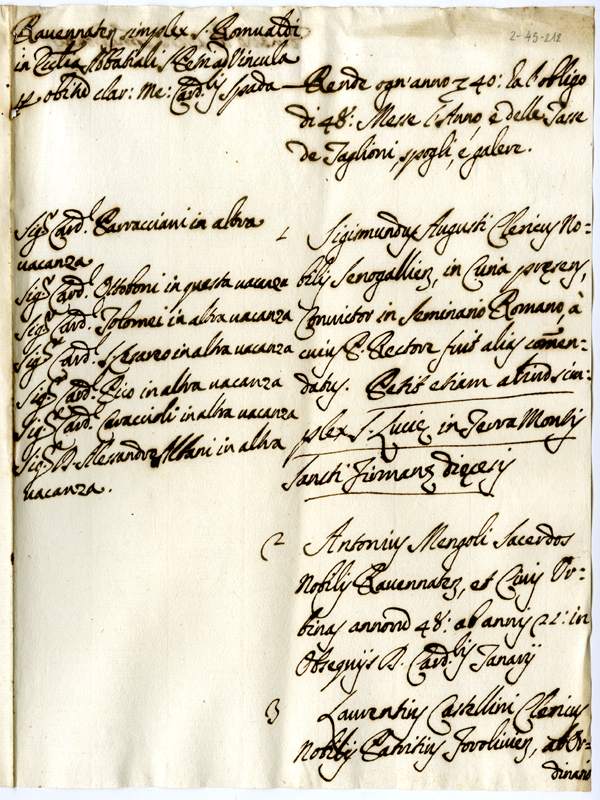 2-45-212
Ravennaten simplex S. Romualdi
in Eccl̃ia Abbatiali S. Petri ad Vincula
p obitũ clar: me: Card.lis Spada
Rende ogn'anno 40: ha l'obligo
di 48: Messe l'Anno, e delle Tasse
de Taglioni, spogli, e galere.
Sig.r Card. Parracciani in altra
vacanza
Sig.r Card. Ottoboni in questa vacanza
Sig.r Card. Tolomei in altra vacanza
Sig.r Card. in altra vacanza
Sig.r Card. Pico in altra vacanza
Sig.r Card. Caraccioli in altra vacanza
Sig.r D. Alessandro Albani in altra
vacanza.
1 Sigismundus Augusti Clericus No-
bilis Senogallien, in Curia præsens,
Convictor in Seminario Romano, à
cuius P. Rectore fuit alias com̃en-
datus. Petit etiam aliud sim-
plex S. Luciæ in Terra Montis
Sancti Firmanæ Dięcesis
2 Antonius Mengoli Sacerdos
Nobilis Ravennaten, et Civis Ur-
binas annorũ 48: ab annis 22: in
Obsequijs D. Card.lis Janarij
3 Laurentius Castellini Clericus
Nobilis Patritius Foroliviens, ab Or-
dinario